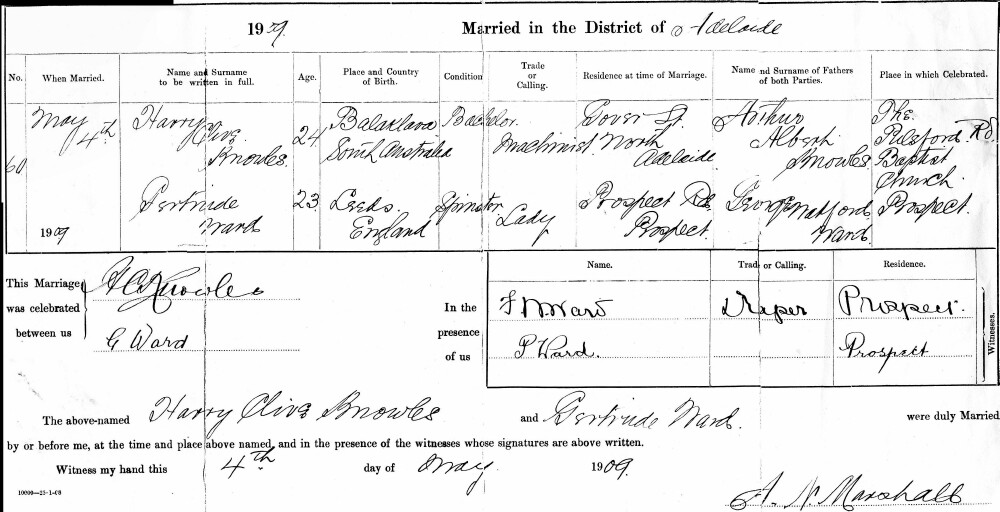 1909 Married in the District of Adelaide
No. When Married. Name and Surname to be written in full. Age. Place and Country of Birth. Condition Trade or Calling. Residence at time of Marriage. Name and Surname of Fathers of both Parties. Place in which Celebrated.
60 May 4th 1909
Harry Clive Knowles 24 Balaklava South Australia Bachelor Machinist Tover St North Adelaide Arthur Albert Knowles The Pulsford Rd Baptist Church Prospect.
Gertrude Ward 23 Leeds. England Spinster Lady Prospect Rd. Prospect. George Watford Ward
This Marriage was celebrated between us
H C Knowles
G Ward
In the presence of us
Name. Trade or Calling. Residence.
F W. Ward Draper Prospect.
P Ward. Prospect
Witnesses.
The above-named Harry Clive Knowles and Gertrude Ward. were duly Married
by or before me, at the time and place above named, and in the presence of the witnesses whose signatures are above written.
Witness my hand this 4th day of May 1909.
10000—25-1-08
A. N. Marshall